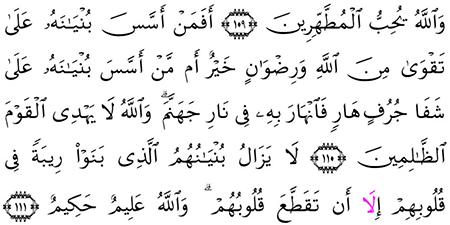 وَٱللَّهُ يُحِبُّ ٱلْمُطَّهِّرِينَ ﴿١٠٩﴾ أَفَمَنْ أَسَّسَ بُنْيَـٰنَهُۥ عَلَىٰ
تَقْوَىٰ مِنَ ٱللَّهِ وَرِضْوَٰنٍ خَيْرٌ أَم مَّنْ أَسَّسَ بُنْيَـٰنَهُۥ عَلَىٰ
شَفَا جُرُفٍ هَارٍ فَٱنْهَارَ بِهِۦ فِى نَارِ جَهَنَّمَ ۗ وَٱللَّهُ لَا يَهْدِى ٱلْقَوْمَ
ٱلظَّـٰلِمِينَ ﴿١١٠﴾ لَا يَزَالُ بُنْيَـٰنُهُمُ ٱلَّذِى بَنَوْا۟ رِيبَةً فِى
قُلُوبِهِمْ إِلَّا أَن تَقَطَّعَ قُلُوبُهُمْ ۗ وَٱللَّهُ عَلِيمٌ حَكِيمٌ ﴿١١١﴾